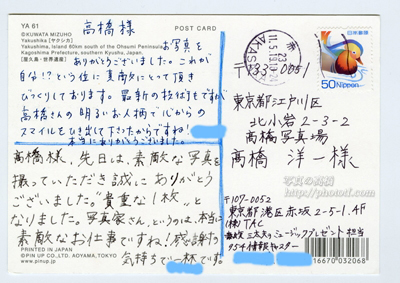 YA 61
POST CARD
©KUWATA MIZUHO
Yakushika [ヤクシカ]
Yakushima, Island 60km south of the Ohsumi Peninsula,
Kagoshima Prefecture, southern Kyushu, Japan
[屋久島・世界遺産]
高橋様
お写真を
ありがとうございました。これが
自分!?という位に素敵にとって頂き
びっくりしております。最新の技術もですが
高橋さんの明るいお人柄で心からの
スマイルをひき出して下さったからですね!
本当にありがとうございました。
高橋様、先日は、素敵な写真を
撮っていただき誠にありがとう
ございました。“貴重な1枚”と
なりました。写真家さん、というのは、本当に
素敵なお仕事ですね!感謝の
気持ちで一杯です。
PRINTED IN JAPAN
© PIN UP CO.,LTD. AOYAMA, TOKYO
www.pinup.jp
日本郵便
50 NIPPON
赤坂
11.5.19
AKASAKA
〒133-0051
東京都江戸川区
北小岩2-3-2
高橋写真場
高橋 洋一様
写真の高橋
http://photojp.com
〒107-0052
東京都港区赤坂2-5-1.4F
(株)TAC
ミュージックプレゼント担当
954情報キャスター
16670 032068